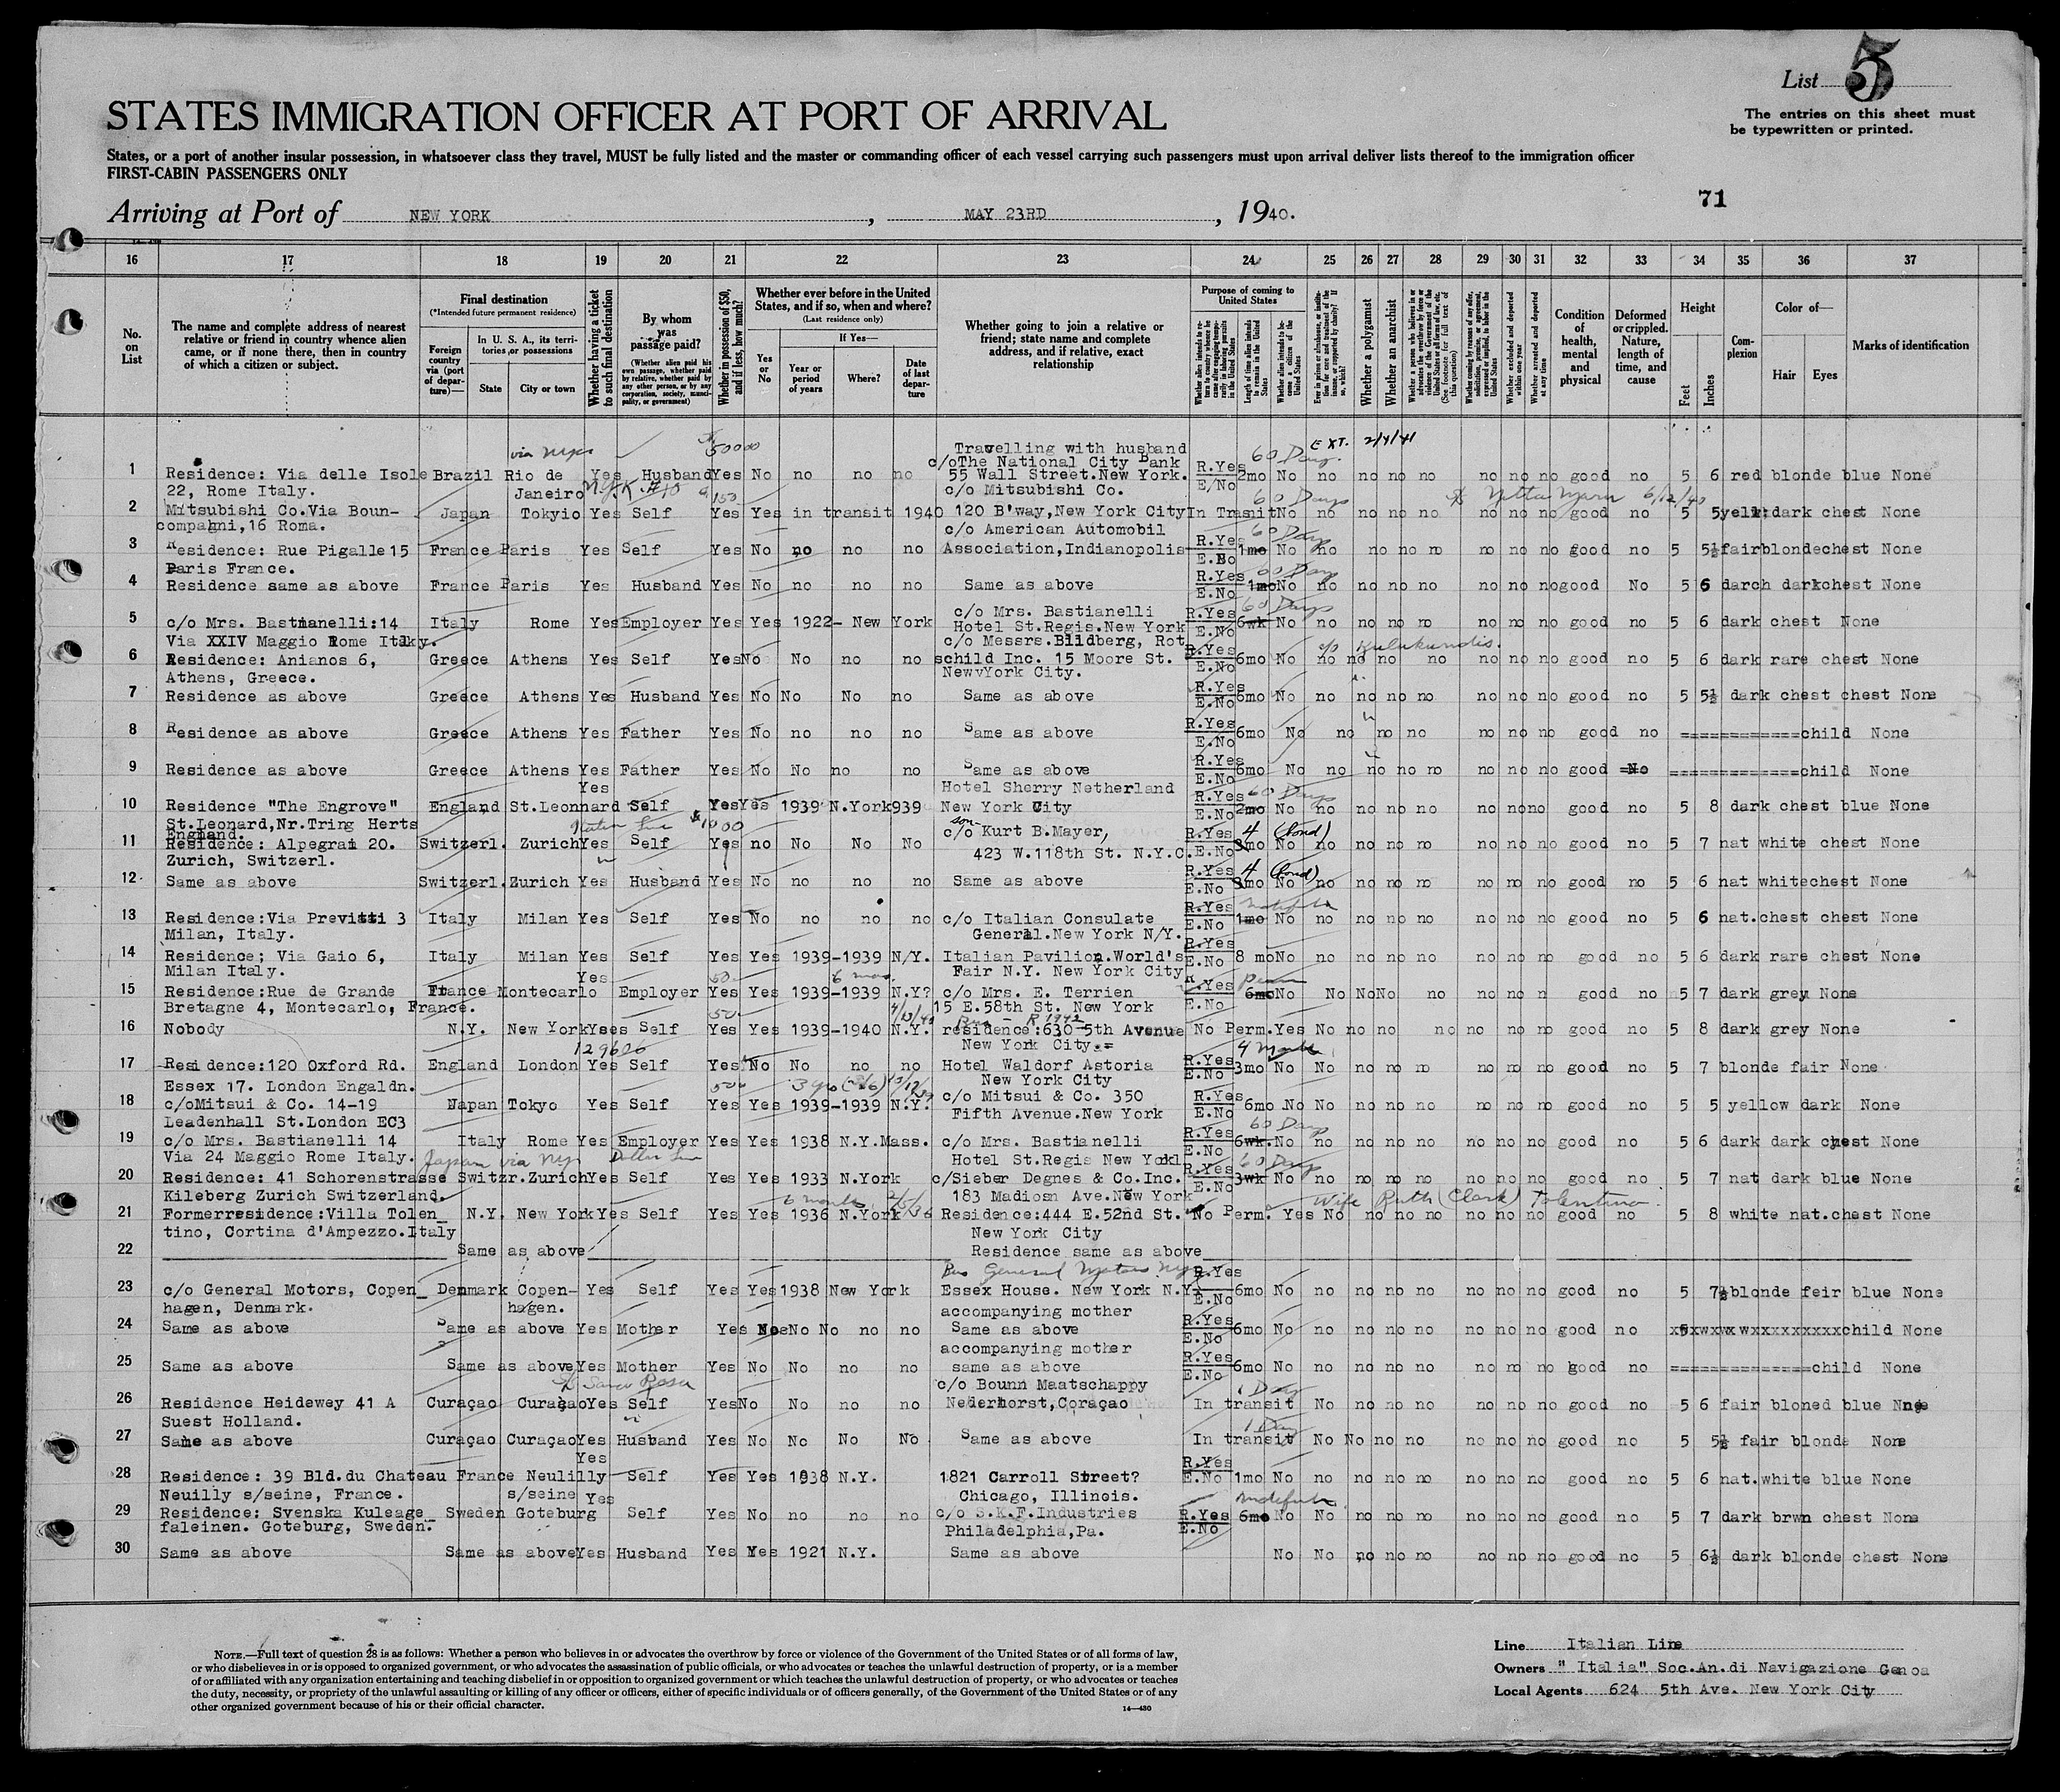 List 5
The entries on this sheet must
be typewritten or printed.
STATES IMMIGRATION OFFICER AT PORT OF ARRIVAL
States, or a port of another insular possession, in whatsoever class they travel, MUST be fully listed and the master or commanding officer of each vessel carrying such passengers must upon arrival deliver lists thereof to the immigration officer
FIRST-CABIN PASSENGERS ONLY
71
Arriving at Port of NEW YORK, MAY 23RD, 1940.
16 17 18 19 20 21 22 23 24 25 26 27 28 29 30 31 32 33 34 35 36 37
No. on List
The name and complete address of nearest relative or friend in country whence alien came, or if none there, then in country of which a citizen or subject.
Final destination
(*Intended future permanent residence)
Foreign country via (port of departure)—
In U. S. A., its territories or possessions
State
City or town
Whether having a ticket to such final destination
By whom was passage paid?
(Whether alien paid his own passage, whether paid by relative, whether paid by any other person, or by any corporation, society, municipality, or government)
Whether in possession of $50, and if less, how much?
Whether ever before in the United States, and if so, when and where?
(Last residence only)
Yes or No
If Yes—
Year or period of years
Where?
Date of last departure
Whether going to join a relative or friend; state name and complete address, and if relative, exact relationship
Purpose of coming to United States
Whether a polygamist
Whether an anarchist
Condition of health, mental and physical
Deformed or crippled. Nature, length of time, and cause
Height
Feet
Inches
Complexion
Color of—
Hair
Eyes
Marks of identification
via nyc 50000 Travelling with husband 60 Days EXT. 2/4/41
c/oThe National City Bank
1 Residence: Via delle Isole Brazil Rio de Yes HusbandYes No no no no 55 Wall Street.New York. R.Yes E/No 2mo No no no no no no no no good no 5 6 red blonde blue None
22, Rome Italy. Janeiro c/o Mitsubishi Co. 60 Days 6/12/40
2 Mitsubishi Co.Via Boun- Japan Tokyio Yes Self Yes Yes in transit 1940 120 B'way,New York City In TrasnitNo no no no no no no no good no 5 5 yell: dark chest None
compagni,16 Roma. c/o American Automobil 60 Days
3 Residence: Rue Pigalle 15 France Paris Yes Self Yes No no no no Association,Indianopolis R.Yes E.No 1mo No no no no no no no no good no 5 5½ fair blonde chest None
Paris France. 60 Days
4 Residence same as above France Paris Yes Husband Yes No no no no Same as above R.Yes E.No 1mo No no no no no no no no good No 5 6 darch dark chest None
c/o Mrs. Bastianelli 60 Days
5 c/o Mrs. Bastianelli:14 Italy Rome Yes Employer Yes Yes 1922- New York Hotel St.Regis.New York R.Yes E.No 6wk No no no no no no no no good no 5 6 dark chest None
Via XXIV Maggio Rome Italy. c/o Messrs.Bildberg, Rot c/o Kulukundis.
6 Residence: Anianos 6, Greece Athens Yes Self Yes No No no no schild Inc. 15 Moore St. R.Yes E.No 6mo No no no no no no no no good no 5 6 dark rare chest None
Athens, Greece. New York City.
7 Residence as above Greece Athens Yes Husband Yes No No No no Same as above R.Yes E.No 6mo No no no no no no no no good no 5 5½ dark chest chest None
8 Residence as above Greece Athens Yes Father Yes No no no no Same as above R.Yes E.No 6mo No no no no no no no good no ============child None
9 Residence as above Greece Athens Yes Father Yes No No no no Same as above R.Yes E.No 6mo No no no no no no no no good No =============child None
Yes Hotel Sherry Netherland 60 Days
10 Residence "The Engrove" England, St.Leonnard Self Yes Yes 1939 N.York939 New York City R.Yes E.No 2mo No no no no no no no no good no 5 8 dark chest blue None
St.Leonard,Nr.Tring Herts England. Italian Line $1000 son
11 Residence: Alpegrai 20. Switzerl. Zurich Yes Self Yes no No No No c/o Kurt B.Mayer, R.Yes E.No 3mo 4 (bond) No no no no no no no no good no 5 7 nat white chest None
Zurich, Switzerl. 423 W.118th St. N.Y.C.
12 Same as above Switzerl. Zurich Yes Husband Yes No no no no Same as above R.Yes E.No 3mo 4 (bond) No no no no no no no no good no 5 6 nat white chest None
13 Residence:Via Previtti 3 Italy Milan Yes Self Yes No no no no c/o Italian Consulate R.Yes E.No 1mo No no no no no no no no good no 5 6 nat.chest chest None
Milan, Italy. General.New York N/Y.
14 Residence; Via Gaio 6, Italy Milan Yes Self Yes Yes 1939-1939 N/Y. Italian Pavilion.World's R.Yes E.No 8 mo No no no no no no no no good no 5 6 dark rare chest None
Milan Italy. Yes 50 6 mos. Fair N.Y. New York City Perm
15 Residence:Rue de Grande France Montecarlo Employer Yes Yes 1939-1939 N.Y? c/o Mrs. E. Terrien R.Yes E.No 6mo No No No No no no no n good no 5 7 dark grey None
Bretagne 4, Montecarlo, France. 50 15 E.58th St. New York
16 Nobody N.Y. New York Yes Self Yes Yes 1939-1940 N.Y. residence:630-5th Avenue No Perm.Yes No no no no no no no good no 5 8 dark grey None
129626 New York City.= 4 Months
17 Residence:120 Oxford Rd. England London Yes Self Yes No No no no Hotel Waldorf Astoria R.Yes E.No 3mo No No no no no no no no good no 5 7 blonde fair None
Essex 17. London Engaldn. New York City
18 c/oMitsui & Co. 14-19 Napan Tokyo Yes Self Yes Yes 1939-1939 N.Y. c/o Mitsui & Co. 350 R.Yes E.No 6mo No No no no no no no no good no 5 5 yellow dark None
Leadenhall St.London EC3 Fifth Avenue.New York 60 Days
19 c/o Mrs. Bastianelli 14 Italy Rome Yes Employer Yes Yes 1938 N.Y.Mass. c/o Mrs. Bastianelli R.Yes E.No 6wk. No no no no no no no no good no 5 6 dark dark chest None
Via 24 Maggio Rome Italy. Japan via nyc Dollar Line Hotel St.Regis New York 60 Days
20 Residence: 41 Schorenstrasse Switzr.Zurich Yes Self Yes Yes 1933 N.York c/Sieber Degnes & Co.Inc. R.Yes E.No 3wk No no no no no no no no good no 5 7 nat dark blue None
Kileberg Zurich Switzerland. 6 months 183 Madiosn Ave.New York Wife Ruth (Clark) Tolentino
21 Formerresidence:Villa Tolen_ N.Y. New York Yes Self Yes Yes 1936 N.York Residence:444 E.52nd St. No Perm. Yes No no no no no no no good no 5 8 white nat.chest None
tino, Cortina d'Ampezzo.Italy New York City
22 Same as above Residence same as above
Bus General Motors Nyc
23 c/o General Motors, Copen_ Denmark Copen- Yes Self Yes Yes 1938 New York Essex House. New York N.Y. R.Yes E.No 6mo No no no no no no no no good no 5 7½ blonde feir blue None
hagen, Denmark. hagen. accompanying mother
24 Same as above Same as above Yes Mother Yes No No no no Same as above R.Yes E.No 6mo No no no no no no no no good no child None
accompanying mother
25 Same as above Same as above Yes Mother Yes No No no no same as above R.Yes E.No 6mo No no no no no no no no good no ==============child None
S/S Santa Rosa c/o Bounn Maatschappy 1 Day
26 Residence Heidewey 41 A Curaçao Curaçao Yes Self Yes No No no no Nederhorst,Coraçao In transit No no no no no no no no good no 5 6 fair bloned blue None
Suest Holland. 1 Day
27 Same as above Curaçao Curaçao Yes Husband Yes No No No No Same as above In transit No No no no no no no good no 5 5½ fair blonde None
Yes
28 Residence: 39 Bld.du Chateau France Neulilly Self Yes Yes 1938 N.Y. 1821 Carroll Street? R.Yes E.No 1mo No no no no no no no no good no 5 6 nat.white blue None
Neuilly s/seine, France. s/seine Yes Chicago, Illinois.
29 Residence: Svenska Kuleage_ Sweden Goteburg Self Yes No no no no c/o S.K.F.Industries R.Yes E.No 6mo No No no no no no no no good no 5 7 dark brwn chest None
faleinen. Goteburg, Sweden. Philadelphia,Pa.
30 Same as above Same as above Yes Husband Yes Yes 1921 N.Y. Same as above No No no no no no no no good no 5 6½ dark blonde chest None
NOTE.—Full text of question 28 is as follows: Whether a person who believes in or advocates the overthrow by force or violence of the Government of the United States or of all forms of law,
or who disbelieves in or is opposed to organized government, or who advocates the assassination of public officials, or who advocates or teaches the unlawful destruction of property, or is a member
of or affiliated with any organization entertaining and teaching disbelief in or opposition to organized government or which teaches the unlawful destruction of property, or who advocates or teaches
the duty, necessity, or propriety of the unlawful assaulting or killing of any officer or officers, either of specific individuals or of officers generally, of the Government of the United States or of any
other organized government because of his or their official character.
14—430
Line Italian Line
Owners "Italia" Soc.An.di Navigazione Genoa
Local Agents 624 5th Ave. New York City